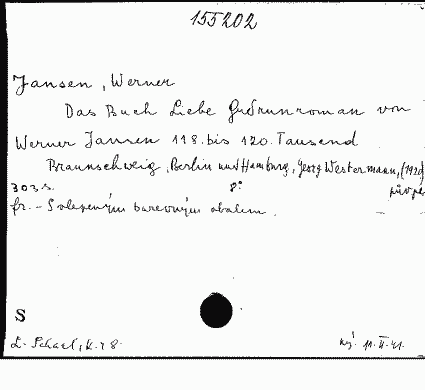 155202
Jansen, Werner
Das Buch Liebe Gudrunroman von
Werner Jansen 118. bis 120. Tausend
Braunschweig, Berlin und Hamburg, Georg Westermann, (1920)
303 s. 8°
fr. - S barevným obalem.
S
11. II. 41.